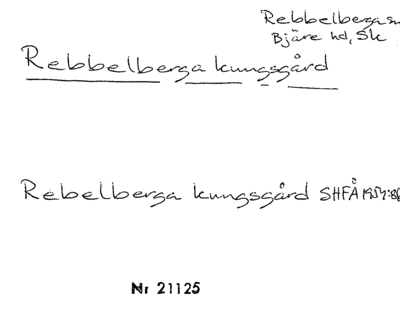 Rebbelberga sn
Bjäre hd, Sk
Rebbelberga kungsgård
Rebelberga kungsgård SHFÅ 1957:86
Nr 21125